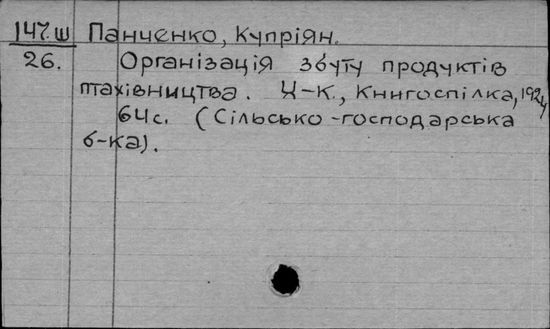 147.ш Панченко, Купріян.
26. Організація збуту продуктів
птахівництва. Х-К., Книгоспілка, 1924,
64с. (Сільсько-господарська
б-ка).